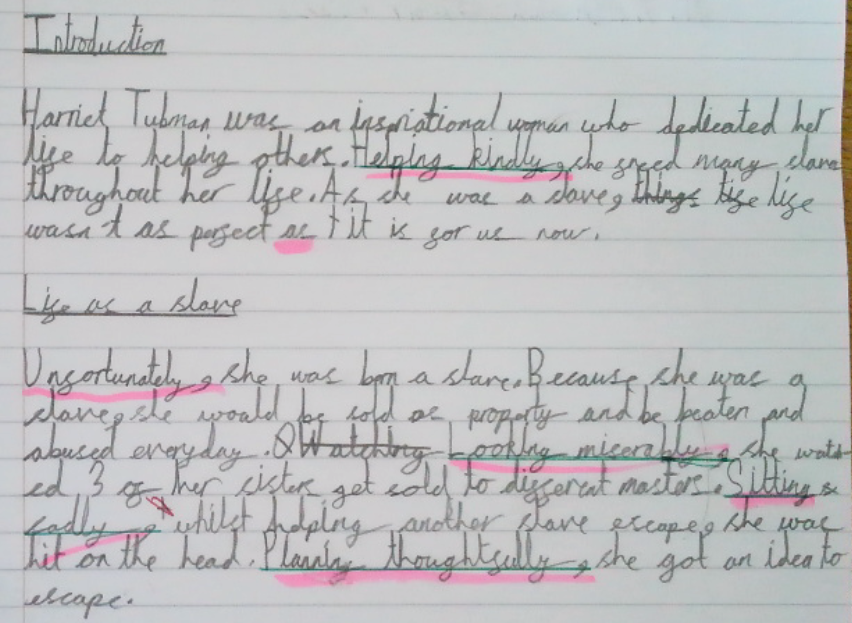 Introduction
Harriet Tubman was an inspriational woman who dedicated her
life to helping others. Helping kindly, she freed many slave
throughout her life. As she was a slave, things life life
wasn't as perfect as it is for us now.
Life as a slave
Unfortunately, she was born a slave. Because she was a
slave, she would be sold as property and be beaten and
abused everyday. Watching Looking miserably, she watch-
ed 3 of her sisters get sold to different masters. Sitting
sadly, whilst helping another slave escape, she was
hit on the head. Planning thoughtfully, she got an idea to
escape.